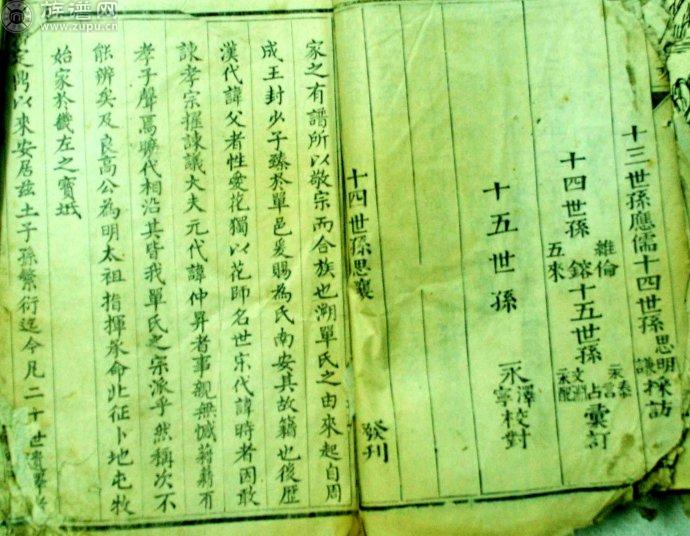 族譜网
www.zupu.cn
十三世孫應儒十四世孫思明謙採訪
十四世孫維倫鎔五來十五世孫永泰言占文淵永配彙訂
十五世孫永澤寧校對
十四世孫思襄發刊
家之有譜所以敬宗而合族也溯單氏之由來起自周
成王封少子臻於單邑爰賜為氏南安其故籍也後歷
漢代諱父者性愛花獨以花師名世宋代諱時者因敢
諫孝宗擢諫議大夫元代諱仲昇者事親無憾籍籍有
孝子聲焉聯代相沿其皆我單氏之宗派乎然稱次不
能辨矣及良高公為明太祖指揮承命北征卜地屯牧
始家於畿左之寶坻
以來安居茲土子孫繁衍迄今凡二十世